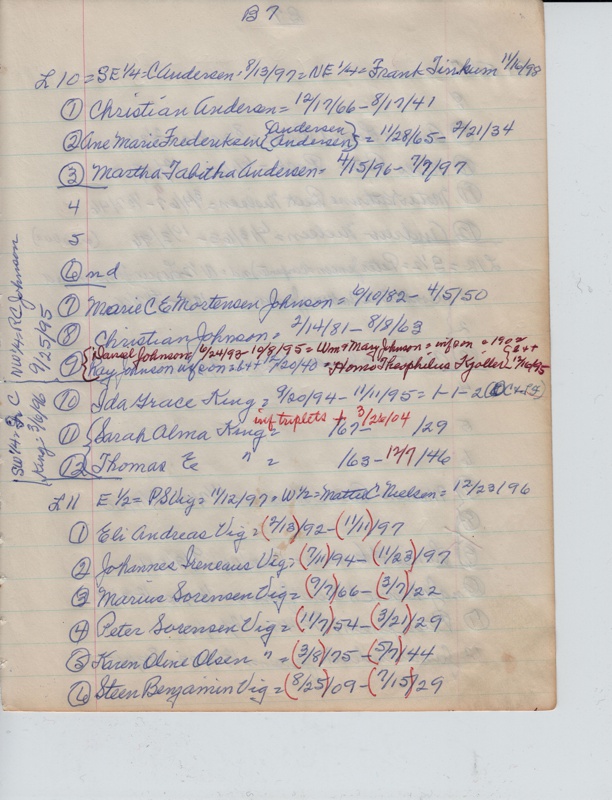 B 7
L 10 = SE 1/4 = C Andersen = 8/13/97 = NE 1/4 = Frank 11/16/98
① Christian Andersen = 12/17/66 - 8/17/41
② Ane Marie Frederiksen {Andersen Andersen} = 11/28/65 - 2/21/34
③ Martha Tabitha Andersen = 4/15/96 - 7/9/97
4
5
⑥ nd
⑦ Marie C E Mortensen Johnson = 6/10/82 - 4/5/50
⑧ Christian Johnson = 2/14/81 - 8/8/63
⑨ {Daniel Johnson 6/24/93 - 10/8/95 = Wm & Mary Johnson = inf son = 1902
Ray Johnson inf son = b++ 7/20/40 = Homso Theophilus Kjoller {b++ 12/16/95
⑩ Ida Grace King = 9/20/94 - 11/11/95 = 1-1-2
inf triplets + 3/26/04
⑪ {Sarah Alma King = /67 - /29
⑫ {Thomas E " = /63 - 12/7/46
SW 1/4 = C King = 3/6/96 { NW 1/4 = R C Johnson 9/25/95
L 11 E 1/2 = P S Vig = 11/12/97 = W 1/2 = Mattie C Nielsen = 12/23/96
① Eli Andreas Vig = (2/13)/92 - (11/11)/97
② Johannes Ireneaus Vig = (7/11)/94 - (11/23)/97
③ Marius Sorensen Vig = (9/7)/66 - (3/7)/22
④ Peter Sorensen Vig = (11/7)/54 - (3/21)/29
⑤ Karen Oline Olsen " = (3/8)/75 - (5/7)/44
⑥ Steen Benjamin Vig = (8/25)/09 - (7/15)/29